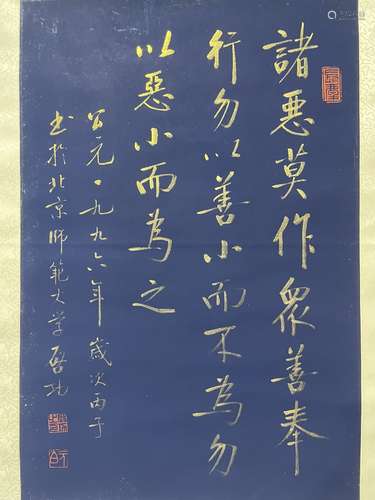 諸惡莫作眾善奉
行勿以善小而不為勿
以惡小而為之
公元一九九六年歲次丙子
書於北京師範大學啓功